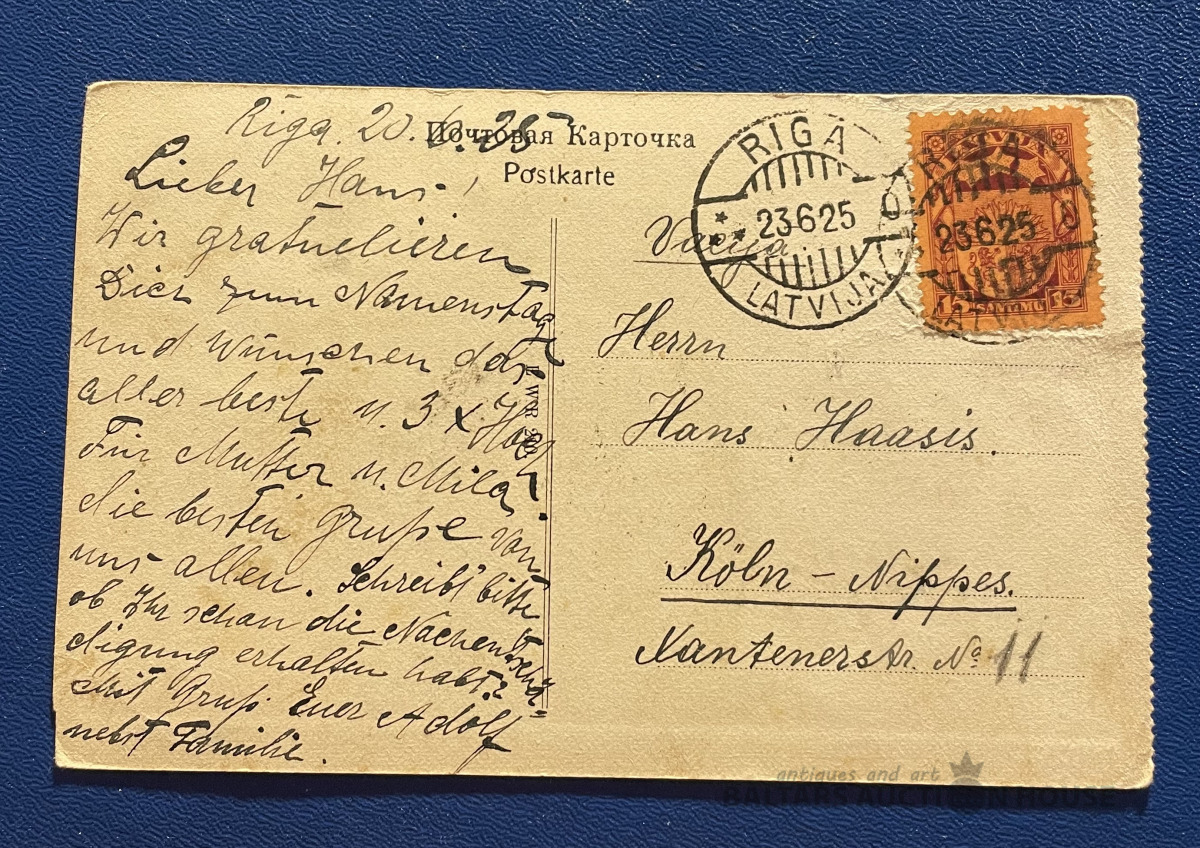 Riga. 20. 6. 25
Почтовая Карточка
Postkarte
Lieber Hans,
Wir gratuelieren
Dich zum Namenstag
und wünschen das
aller beste u. 3 x Hoch
Für Mutter u. Mila.
die besten Gruße von
uns allen. Schreibt bitte
ob Ihr schon die Nachentschä-
digung erhalten habt?
Mit Gruß. Euer Adolf
nebst Familie.
RIGA
23.6.25
LATVIJA
23.6.25
LATVIJA
Vācija
Herrn
Hans Haasis.
Köln - Nippes.
Xantenerstr. No 11
antiques and art
BALTARS AUCTION HOUSE